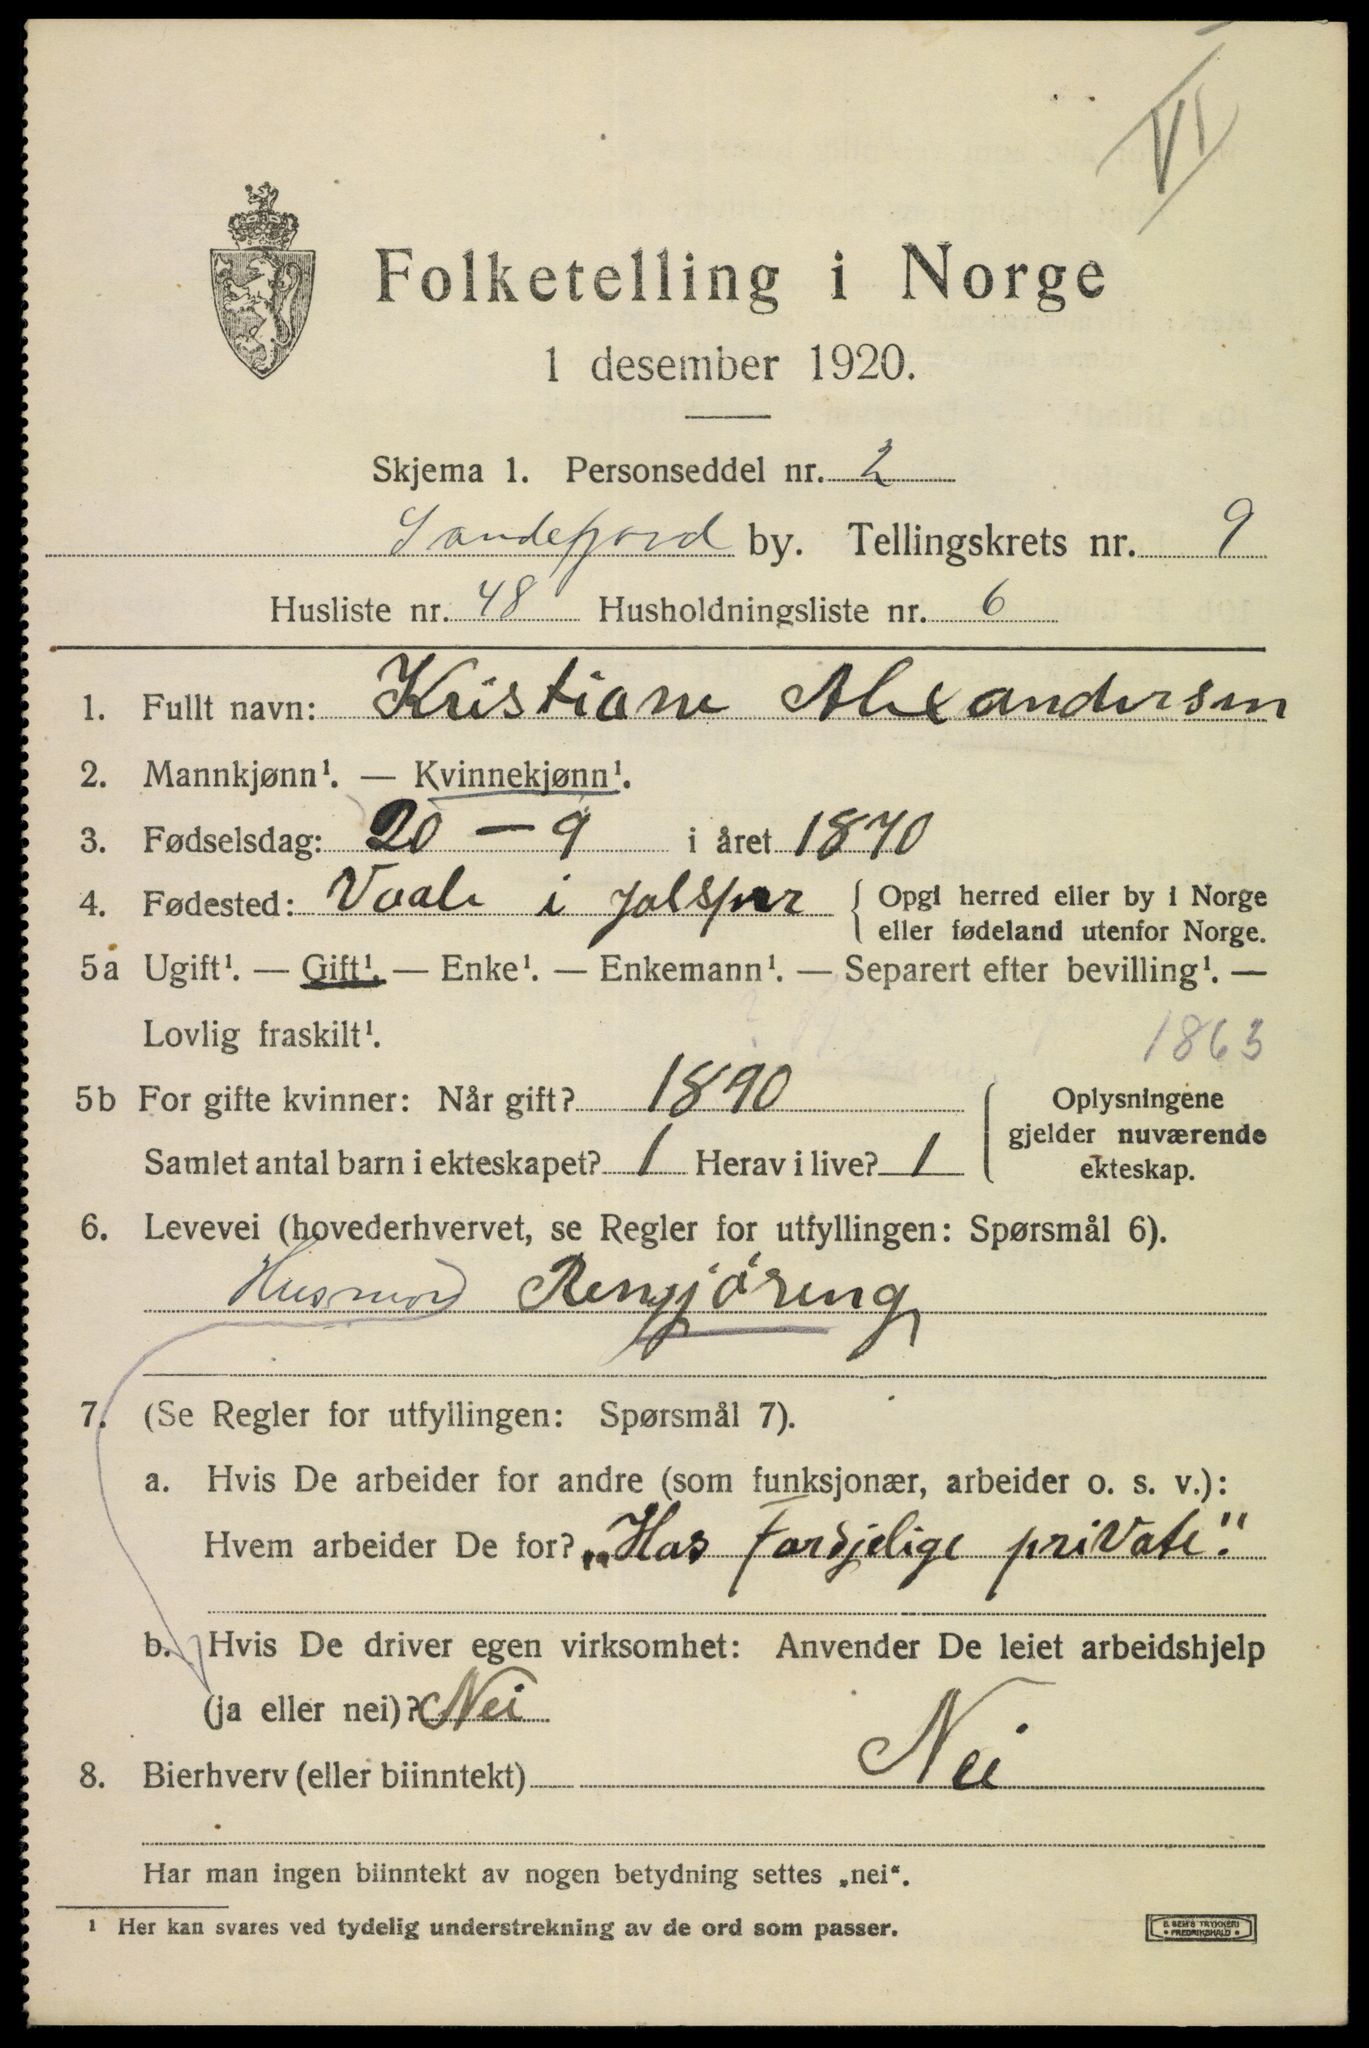 VI
Folketelling i Norge
1 desember 1920.
Skjema 1. Personseddel nr. 2
Sandefjord by. Tellingskrets nr. 9
Husliste nr. 48 Husholdningsliste nr. 6
1. Fullt navn: Kristiane Alexandersen
2. Mannkjønn¹. — Kvinnekjønn¹.
3. Fødselsdag: 20 — 9 i året 1870
4. Fødested: Vaale i { Opgi herred eller by i Norge
eller fødeland utenfor Norge.
5a Ugift¹. — Gift¹. — Enke¹. — Enkemann¹. — Separert efter bevilling¹. —
Lovlig fraskilt¹. 1863
5b For gifte kvinner: Når gift? 1890 Oplysningene
Samlet antal barn i ekteskapet? 1 Herav i live? 1 gjelder nuværende
ekteskap.
6. Levevei (hovederhvervet, se Regler for utfyllingen: Spørsmål 6).
Husmor Rengjöring
7. (Se Regler for utfyllingen: Spørsmål 7).
a. Hvis De arbeider for andre (som funksjonær, arbeider o. s. v.):
Hvem arbeider De for? „Hos Forsjelige private."
b. Hvis De driver egen virksomhet: Anvender De leiet arbeidshjelp
(ja eller nei)? Nei
8. Bierhverv (eller biinntekt) Nei
Har man ingen biinntekt av nogen betydning settes „nei“.
¹ Her kan svares ved tydelig understrekning av de ord som passer.
E. SEM'S TRYKKERI
FREDRIKSHALD